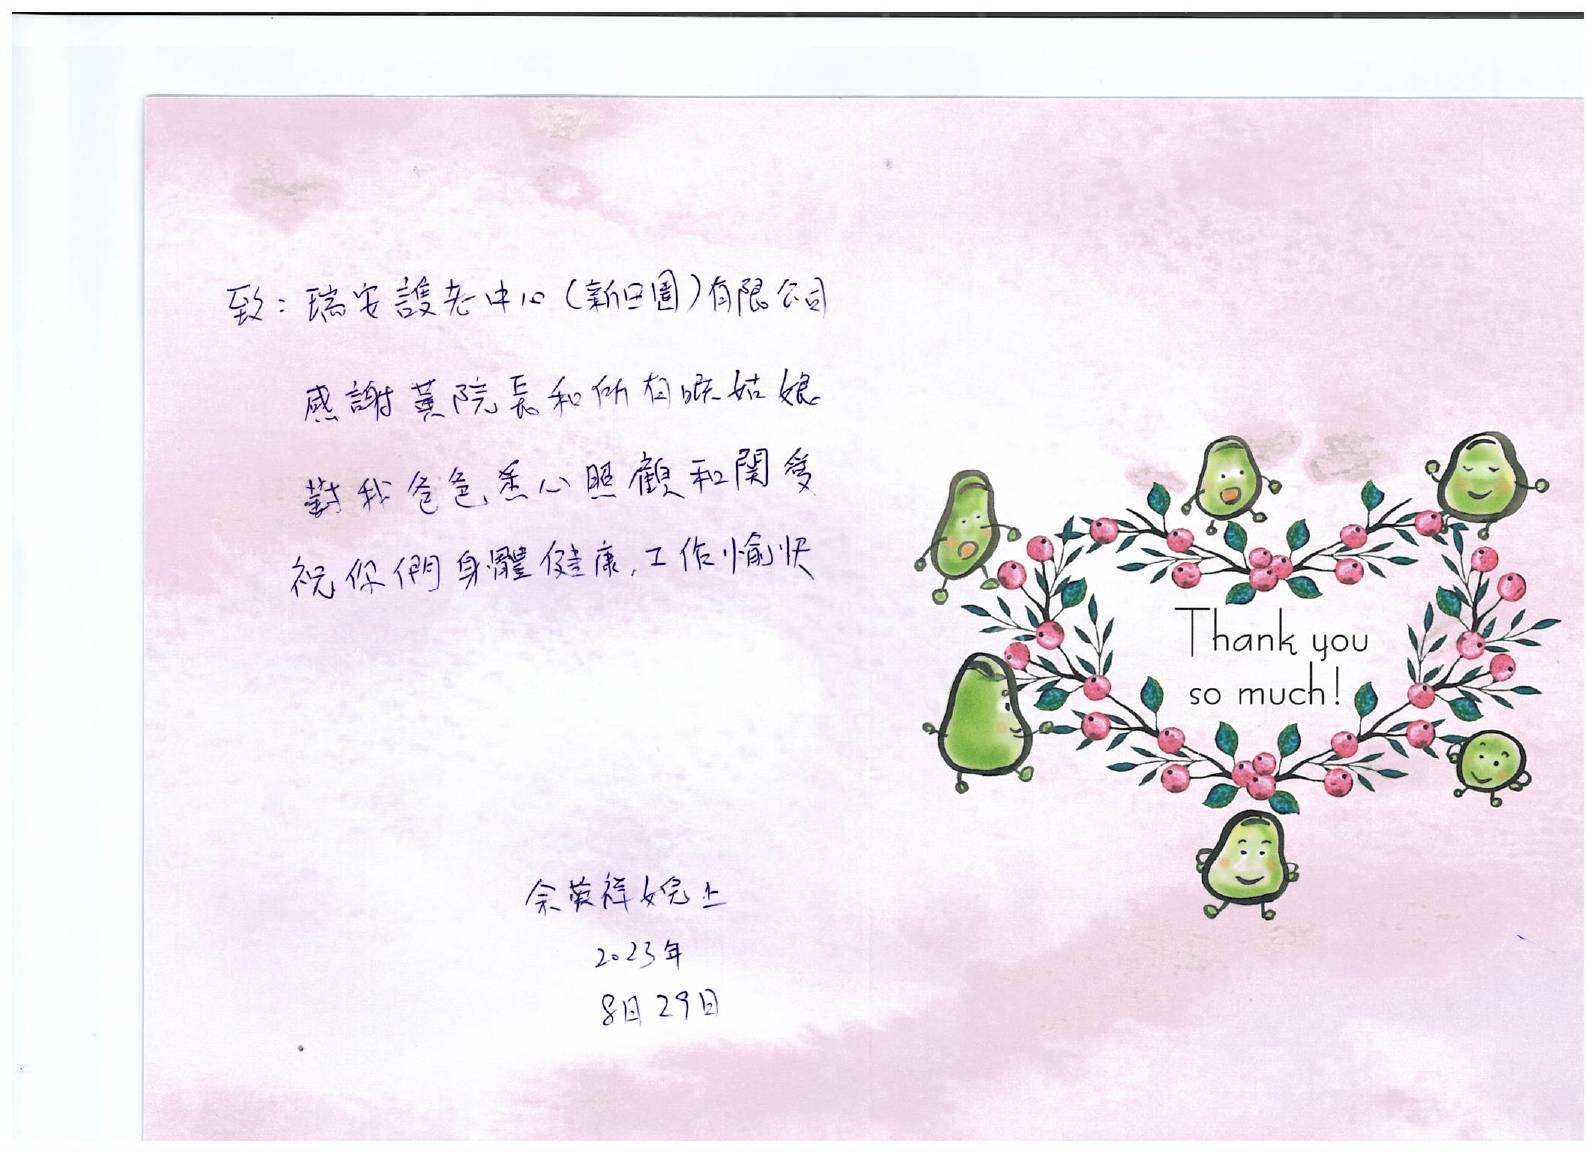 致：瑞安護老中心(新田圍)有限公司
感謝黃院長和所有姑娘
對我爸爸悉心照顧和關愛
祝你們身體健康，工作愉快
Thank you
so much!
余英祥女兒上
2023年
8月29日